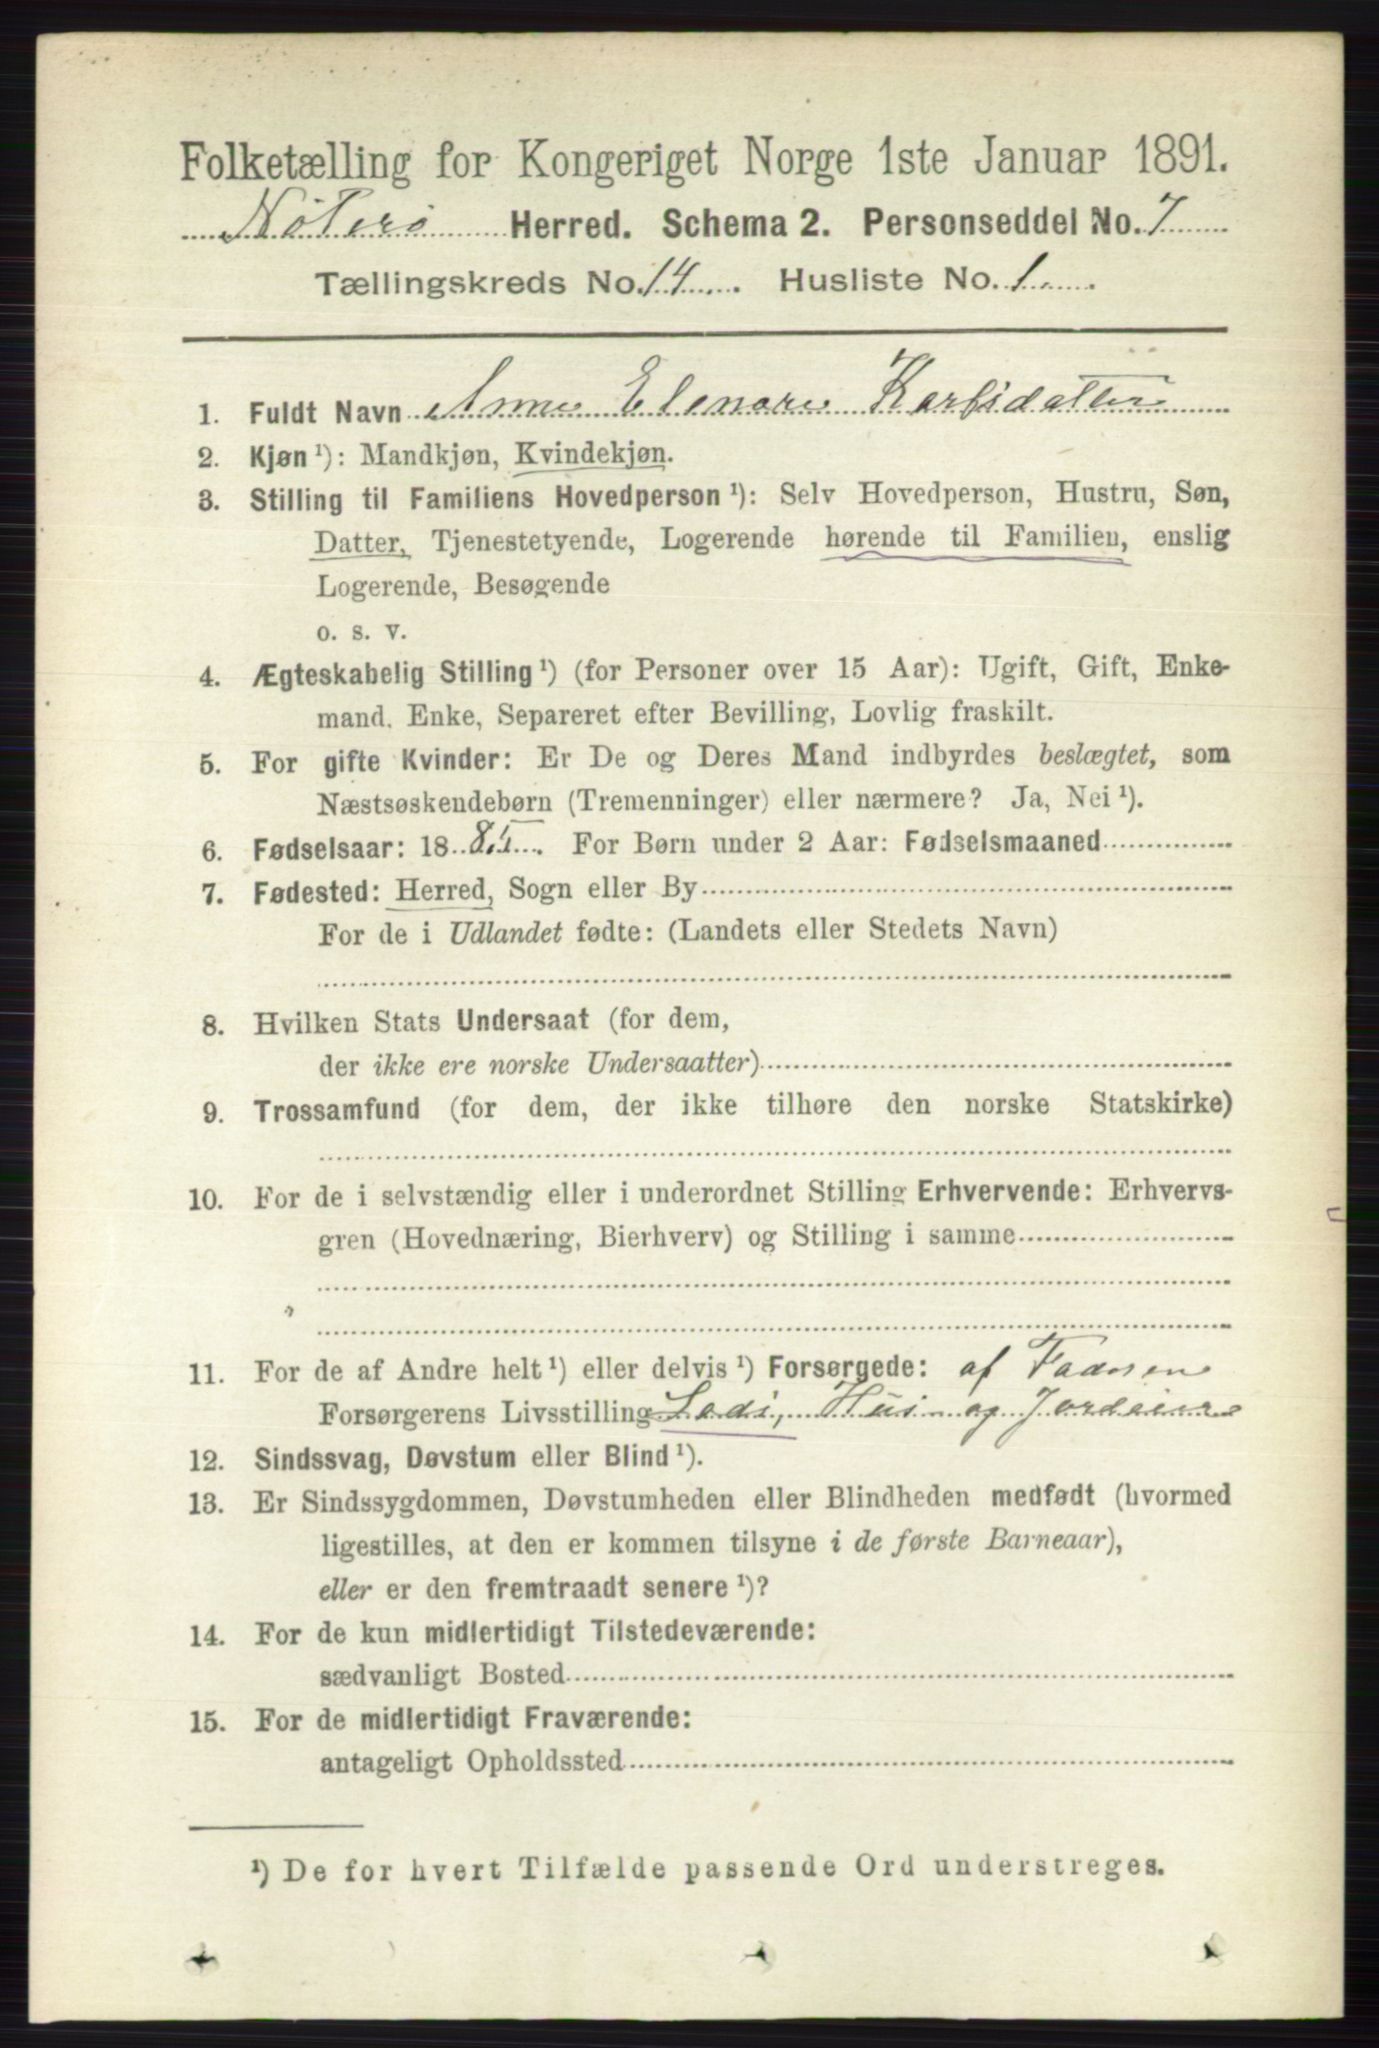 Folketælling for Kongeriget Norge 1ste Januar 1891.
Nøterø Herred. Schema 2. Personseddel No. 7
Tællingskreds No. 14 Husliste No. 1
1. Fuldt Navn Anne Elenore
2. Kjøn ¹): Mandkjøn, Kvindekjøn.
3. Stilling til Familiens Hovedperson ¹): Selv Hovedperson, Hustru, Søn,
Datter, Tjenestetyende, Logerende hørende til Familien, enslig
Logerende, Besøgende
o. s. v.
4. Ægteskabelig Stilling ¹) (for Personer over 15 Aar): Ugift, Gift, Enke-
mand, Enke, Separeret efter Bevilling, Lovlig fraskilt.
5. For gifte Kvinder: Er De og Deres Mand indbyrdes beslægtet, som
Næstsøskendebørn (Tremenninger) eller nærmere? Ja, Nei ¹).
6. Fødselsaar: 18 85. For Børn under 2 Aar: Fødselsmaaned
7. Fødested: Herred, Sogn eller By
For de i Udlandet fødte: (Landets eller Stedets Navn)
8. Hvilken Stats Undersaat (for dem,
der ikke ere norske Undersaatter)
9. Trossamfund (for dem, der ikke tilhøre den norske Statskirke)
10. For de i selvstændig eller i underordnet Stilling Erhvervende: Erhvervs-
gren (Hovednæring, Bierhverv) og Stilling i samme
11. For de af Andre helt ¹) eller delvis ¹) Forsørgede: af
Forsørgerens Livsstilling Lods, Hus og Jordeier
12. Sindssvag, Døvstum eller Blind ¹).
13. Er Sindssygdommen, Døvstumheden eller Blindheden medfødt (hvormed
ligestilles, at den er kommen tilsyne i de første Barneaar),
eller er den fremtraadt senere ¹)?
14. For de kun midlertidigt Tilstedeværende:
sædvanligt Bosted
15. For de midlertidigt Fraværende:
antageligt Opholdssted
¹) De for hvert Tilfælde passende Ord understreges.